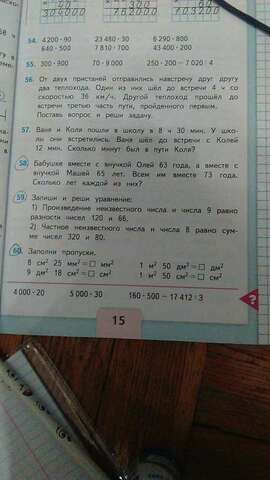 54. 4 200 · 90 23 480 · 30 6 290 · 800
640 · 500 7 810 · 700 43 400 · 200
55. 300 · 900 70 · 9 000 250 · 200 − 7 020 : 4
56. От двух пристаней отправились навстречу друг другу
два теплохода. Один из них шёл до встречи 4 ч со
скоростью 36 км/ч. Другой теплоход прошёл до
встречи третью часть пути, пройденного первым.
Поставь вопрос и реши задачу.
57. Ваня и Коля пошли в школу в 8 ч 30 мин. У шко-
лы они встретились. Ваня шёл до встречи с Колей
12 мин. Сколько минут был в пути Коля?
58. Бабушке вместе с внучкой Олей 63 года, а вместе с
внучкой Машей 65 лет. Всем им вместе 73 года.
Сколько лет каждой из них?
59. Запиши и реши уравнение:
1) Произведение неизвестного числа и числа 9 равно
разности чисел 120 и 66.
2) Частное неизвестного числа и числа 8 равно сум-
ме чисел 320 и 80.
60. Заполни пропуски.
8 см² 25 мм² = □ мм² 1 м² 50 дм² = □ дм²
9 дм² 18 см² = □ см² 1 м² 50 см² = □ см²
4 000 · 20 5 000 · 30 160 · 500 − 17 412 : 3
?
15